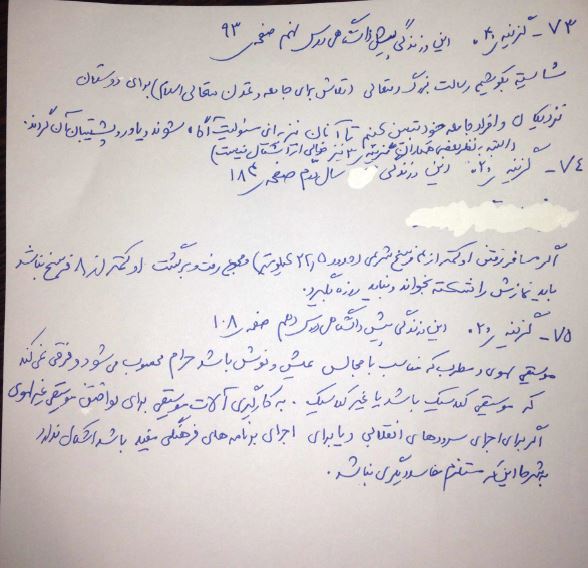 ۷۳- گزینه ی ۴. دین و زندگی پیش دانشگاهی درس نهم صفحه ی ۹۳
شایسته بکوشیم رسالت بزرگ و تلاش برای جامعه و تمدن متعالی اسلامی) برای دوستان
نزدیکان و افراد جامعه خود تبیین کنیم تا آنان نیز به این مسئولیت آگاه شوند و یاور و پشتیبان آن گردند.
(البته به نظر بعضی همکاران گزینه ی ۳ نیز خالی از اشکال نیست)
۷۴- گزینه ی ۲. دین و زندگی سال دوم صفحه ی ۱۸۳
اگر مسافر رفتن او کمتر از ۴ فرسخ شرعی (حدود ۲۲/۵ کیلومتر) و مجموع رفت و برگشت او کمتر از ۸ فرسخ نباشد
باید نمازش را شکسته بخواند و نباید روزه بگیرد.
۷۵- گزینه ی ۲. دین و زندگی پیش دانشگاهی درس دهم صفحه ی ۱۰۸
موسیقی لهوی و مطرب که متناسب با مجالس عیش و نوش باشد حرام محسوب می شود و فرقی نمی کند
که موسیقی کلاسیک باشد یا غیر کلاسیک. به کارگیری آلات موسیقی برای نواختن موسیقی غیر لهوی
اگر برای اجرای سرودهای انقلابی و یا برای اجرای برنامه های فرهنگی مفید باشد اشکال ندارد
به شرط این که مستلزم مفاسد دیگری نباشد.